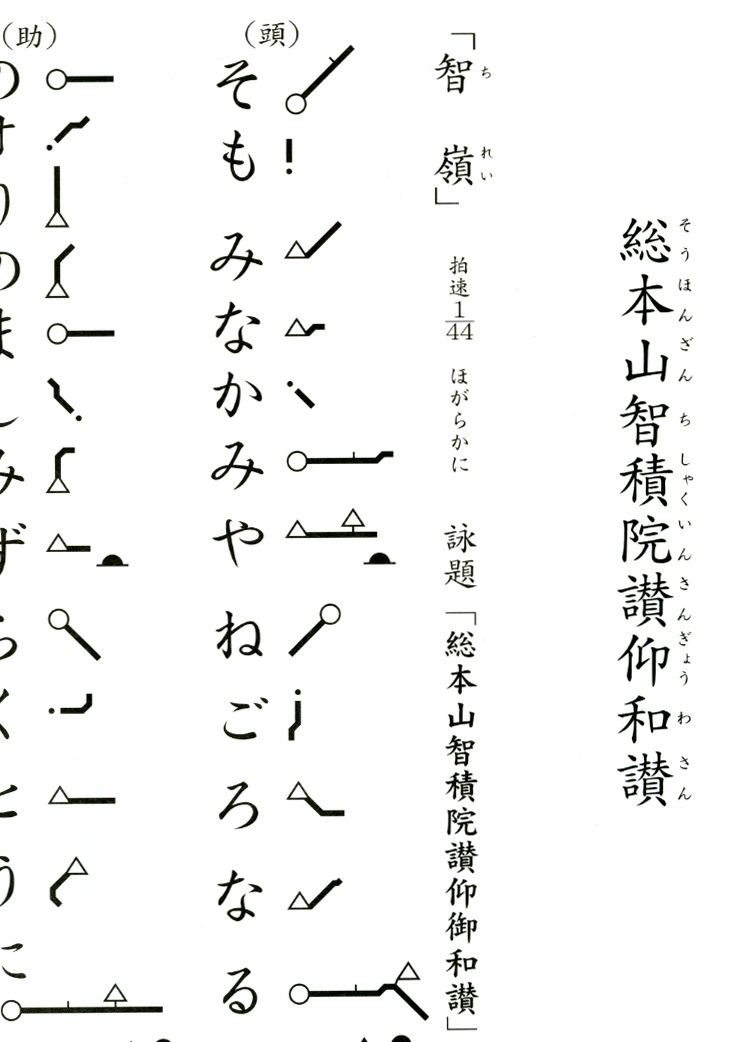 総本山智積院讃仰和讃
そうほんざんちしゃくいんさんぎょうわさん
「智嶺」 拍速1/44 ほがらかに 詠題「総本山智積院讃仰御和讃」
ちれい
(頭)
そもみなかみやねごろなる
(助)